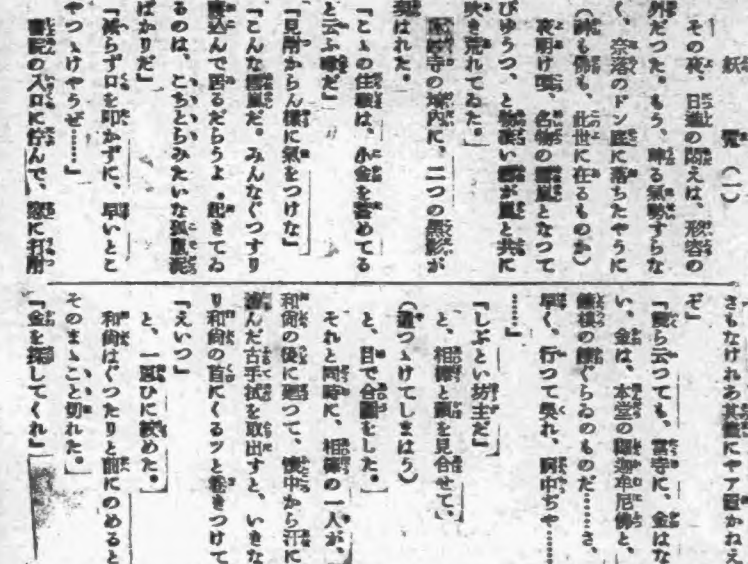 妖
(一)
その夜、日進の悶えは、形容の
外だつた。もう、歸る氣勢すらな
く、奈落のドン底に落ちたやうに
(神も佛も、此世に在るものか)
夜明け頃、名物の雪嵐となつて
びゆうつ、と物凄い雪が風と共に
吹き荒れてゐた。
寺の境内に、二つの黒影が
現はれた。
『こゝの住職は、小金を蓄めてる
と云ふ噂だ』
『見附からん樣に氣をつけな』
『こんな雪嵐だ。みんなぐつすり
寢込んで居るだらうよ。起きてゐ
るのは、こちとらみたいな
ばかりだ』
『減らず口を叩かずに、早いとこ
やつゝけやうぜ……』
の入口に佇んで、
さもなけれあ其儘にやア置かねえ
ぞ』
『幾ら云つても、當寺に、金はな
い。金は、本堂の釋迦牟尼佛と、
ぐらゐのものだ……さ、
早く、行つて呉れ、
……』
『しぶとい坊主だ』
と、相棒と顏を見合せて、
(遣つゝけてしまはう)
と、目で合圖をした。
それと同時に、相棒の一人が、
和尚の後に廻つて、懷中から汗に
んだ古手拭を取出すと、いきな
り和尚の首にくるツと卷きつけて
『えいつ』
と、一思ひに絞めた。
和尚はぐつたりと前にのめると
そのまゝこと切れた。
『金を探してくれ』